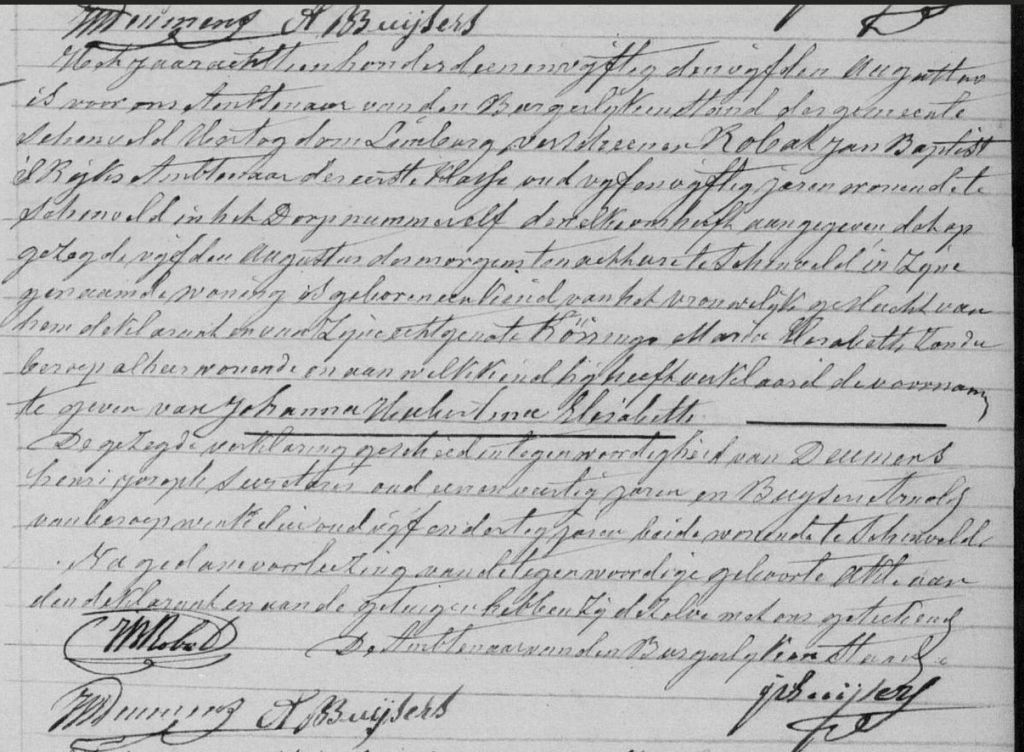 Deumens A Buijsers
Het jaar achttienhonderdeenenvijftig den vijfden Augustus
is voor ons Ambtenaar van den Burgerlijken Stand der gemeente
Schinveld Hertogdom Limburg, verscheenen Robat Jan Baptist
S Rijks Ambtenaar der eerste Klasse oud vijfenvijftig jaren wonende te
Schinveld in het Dorp nummer elf dewelke ons heeft aangegeven dat op
gezegde vijfden Augustus des morgens ten acht ure te Schinveld in zijne
genaamde woning is geboren een kind van het vrouwelijk geslacht van
hem deklarant en van zijne echtgenote Maria Elisabeth zonder
beroep alhier wonende en aan welk kind hij heeft verklaard de voornam
te geven van Johanna Hubertina Elisabeth
De gezegde verklaring geschied in tegenwoordigheid van Deumens
henri joseph Secretaris oud eenenveertig jaren en Buysers Arnold
van beroep oud vijf en dertig jaren beide wonende te Schinveld
Na gedane voorlezing van de tegenwoordige geboorte Akte aan
den deklarant en aan de getuigen hebben zij dezelve met ons getekend
De Ambtenaar van den Burgerlijken Stand
Robat
Deumens A Buijsers